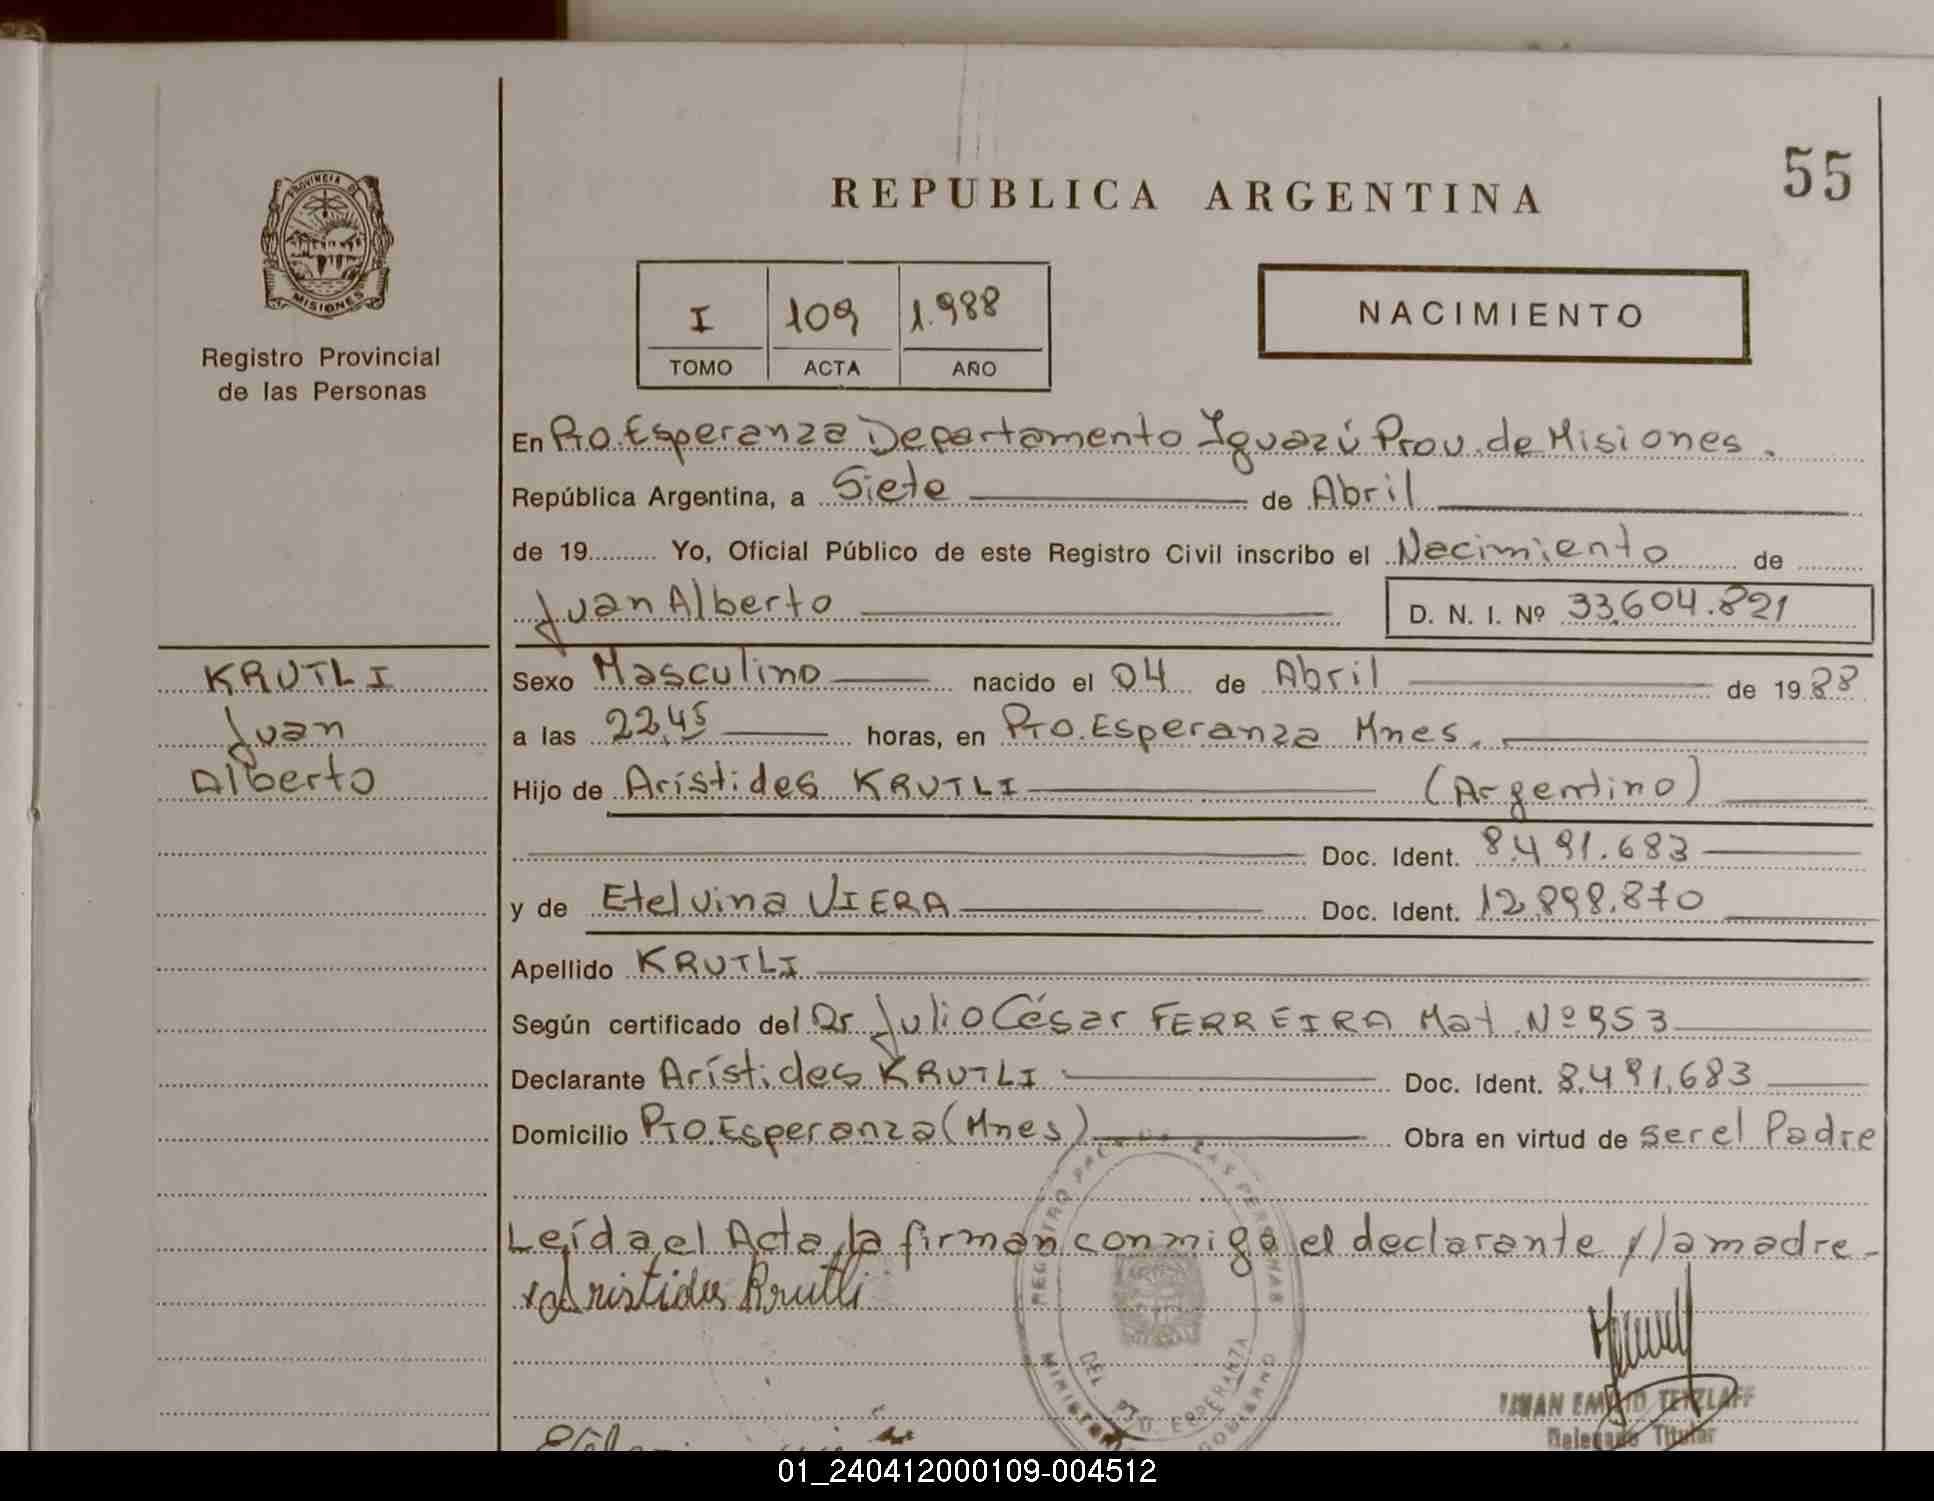 55
REPUBLICA ARGENTINA
PROVINCIA DE
MISIONES
Registro Provincial
de las Personas
I 109 1.988
TOMO ACTA AÑO
NACIMIENTO
En Pto. Esperanza Departamento Iguazú Prov. de Misiones.
República Argentina, a Siete de Abril
de 19.......... Yo, Oficial Público de este Registro Civil inscribo el Nacimiento de
Juan Alberto D. N. I. Nº 33.604.821
KRUTLI
Juan
Alberto
Sexo Masculino nacido el 04 de Abril de 1988
a las 22,45 horas, en Pto. Esperanza Mnes.
Hijo de Arístides KRUTLI (Argentino)
Doc. Ident. 8.491.683
y de Etelvina VIERA Doc. Ident. 12.898.870
Apellido KRUTLI
Según certificado del Dr Julio César FERREIRA Mat Nº 953
Declarante Arístides KRUTLI Doc. Ident. 8.491.683
Domicilio Pto. Esperanza (Mnes) Obra en virtud de ser el Padre
Leída el Acta, la firman conmigo el declarante y la madre-
Aristides Krutli
REGISTRO LAS PERSONAS
DEL PTO. ESPERANZA
GOBIERNO
JUAN EMILIO TETZLAFF
Delegado Titular
01_240412000109-004512